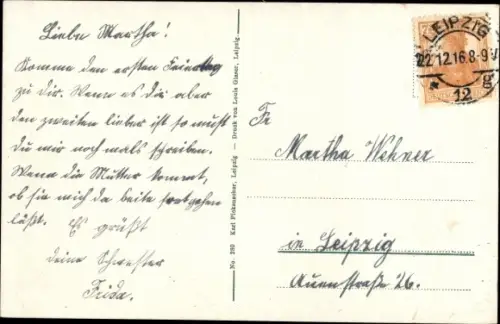 Liebe Martha!
Komme den ersten Feiertag
zu dir. Wenn es dir aber
den zweiten lieber ist so mußt
du mir noch mals schreiben.
Wenn die Mutter kommt,
ob sie mich da beite fortgehen
läßt. Es grüßt
deine Schwester
Frida.
No. 280 Karl Pickenacker, Leipzig — Druck von Louis Glaser, Leipzig
LEIPZIG
22.12.16.8-9V
* 12 g
Fr
Martha Wehner
in Leipzig
Auenstraße 26.